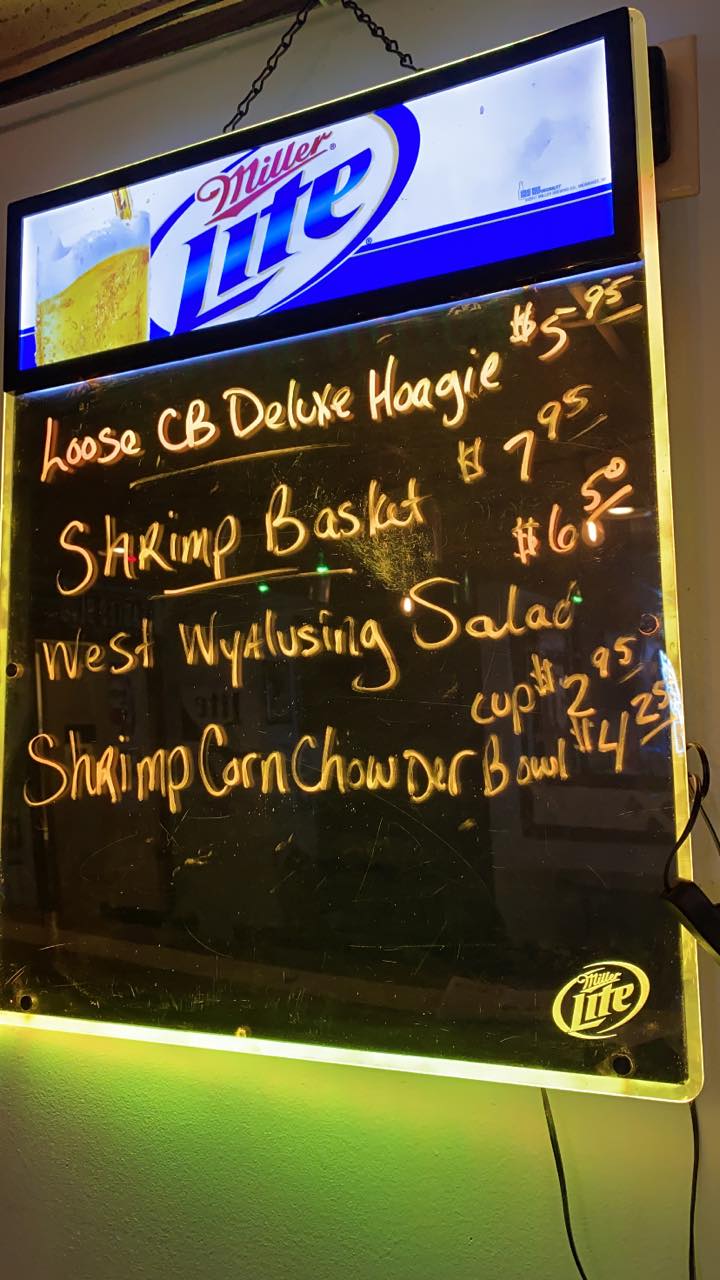 Miller
Lite
Loose CB Deluxe Hoagie $5.95
Shrimp Basket $7.95
West Wyalusing Salad $6.50
cup $2.95
Shrimp Corn Chowder Bowl $4.25
Miller
Lite